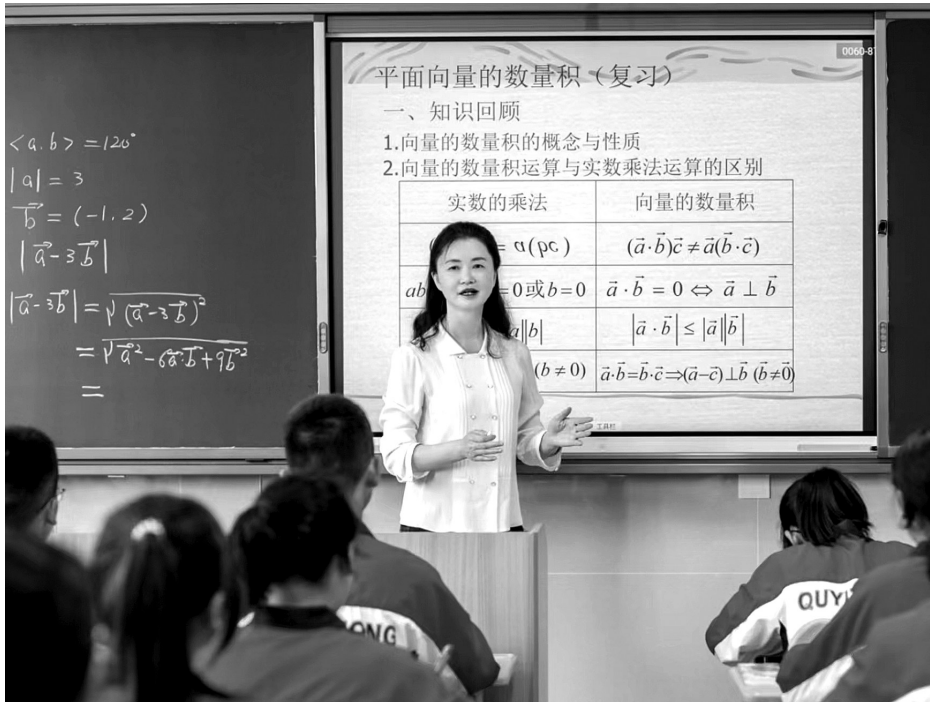 <a.b> =120°
|a| = 3
b⃗ = (-1.2)
|a⃗-3b⃗|
|a⃗-3b⃗| = √(a⃗-3b⃗)²
= √a⃗²-6a⃗·b⃗+9b⃗²
=
平面向量的数量积（复习）
一、知识回顾
1.向量的数量积的概念与性质
2.向量的数量积运算与实数乘法运算的区别
实数的乘法 向量的数量积
= a(bc) (a⃗·b⃗)c⃗≠a⃗(b⃗·c⃗)
ab =0或b=0 a⃗·b⃗ = 0 ⇔ a⃗ ⊥ b⃗
a||b| |a⃗·b⃗| ≤ |a⃗||b⃗|
(b≠0) a⃗·b⃗=b⃗·c⃗⇒(a⃗-c⃗)⊥b⃗ (b⃗≠0⃗)
工具栏
0060-8
ONG
QUY